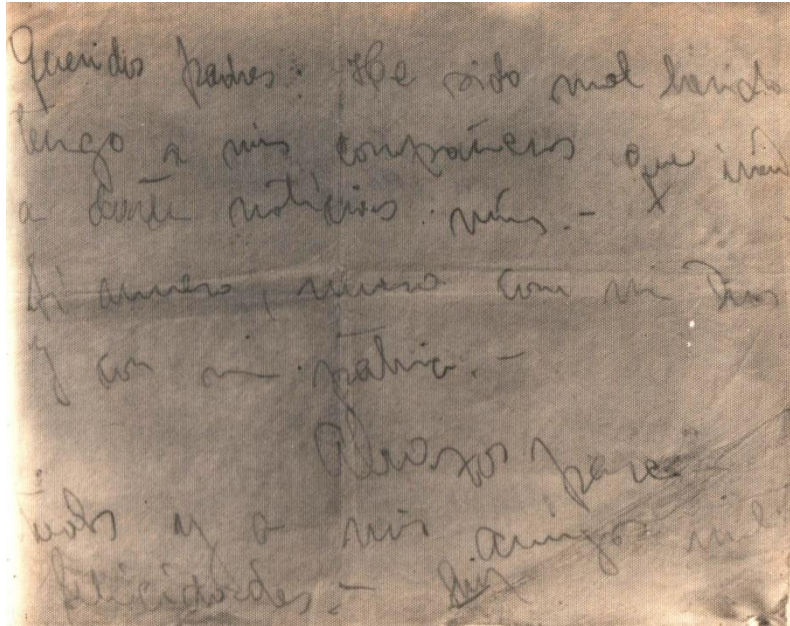 Queridos padres: He sido mal herido
tengo a mis compañeros que irán
a darte noticias mías.-
Si muero, muero con mi Dios
y con mi patria.-
Abrazos para
todos y a mis amigos mil
felicidades.- Luis